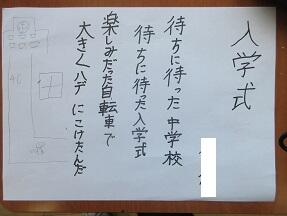 入学式
待ちに待った中学校
待ちに待った入学式
楽しみだった自転車で
大きくハデにこけたんだ